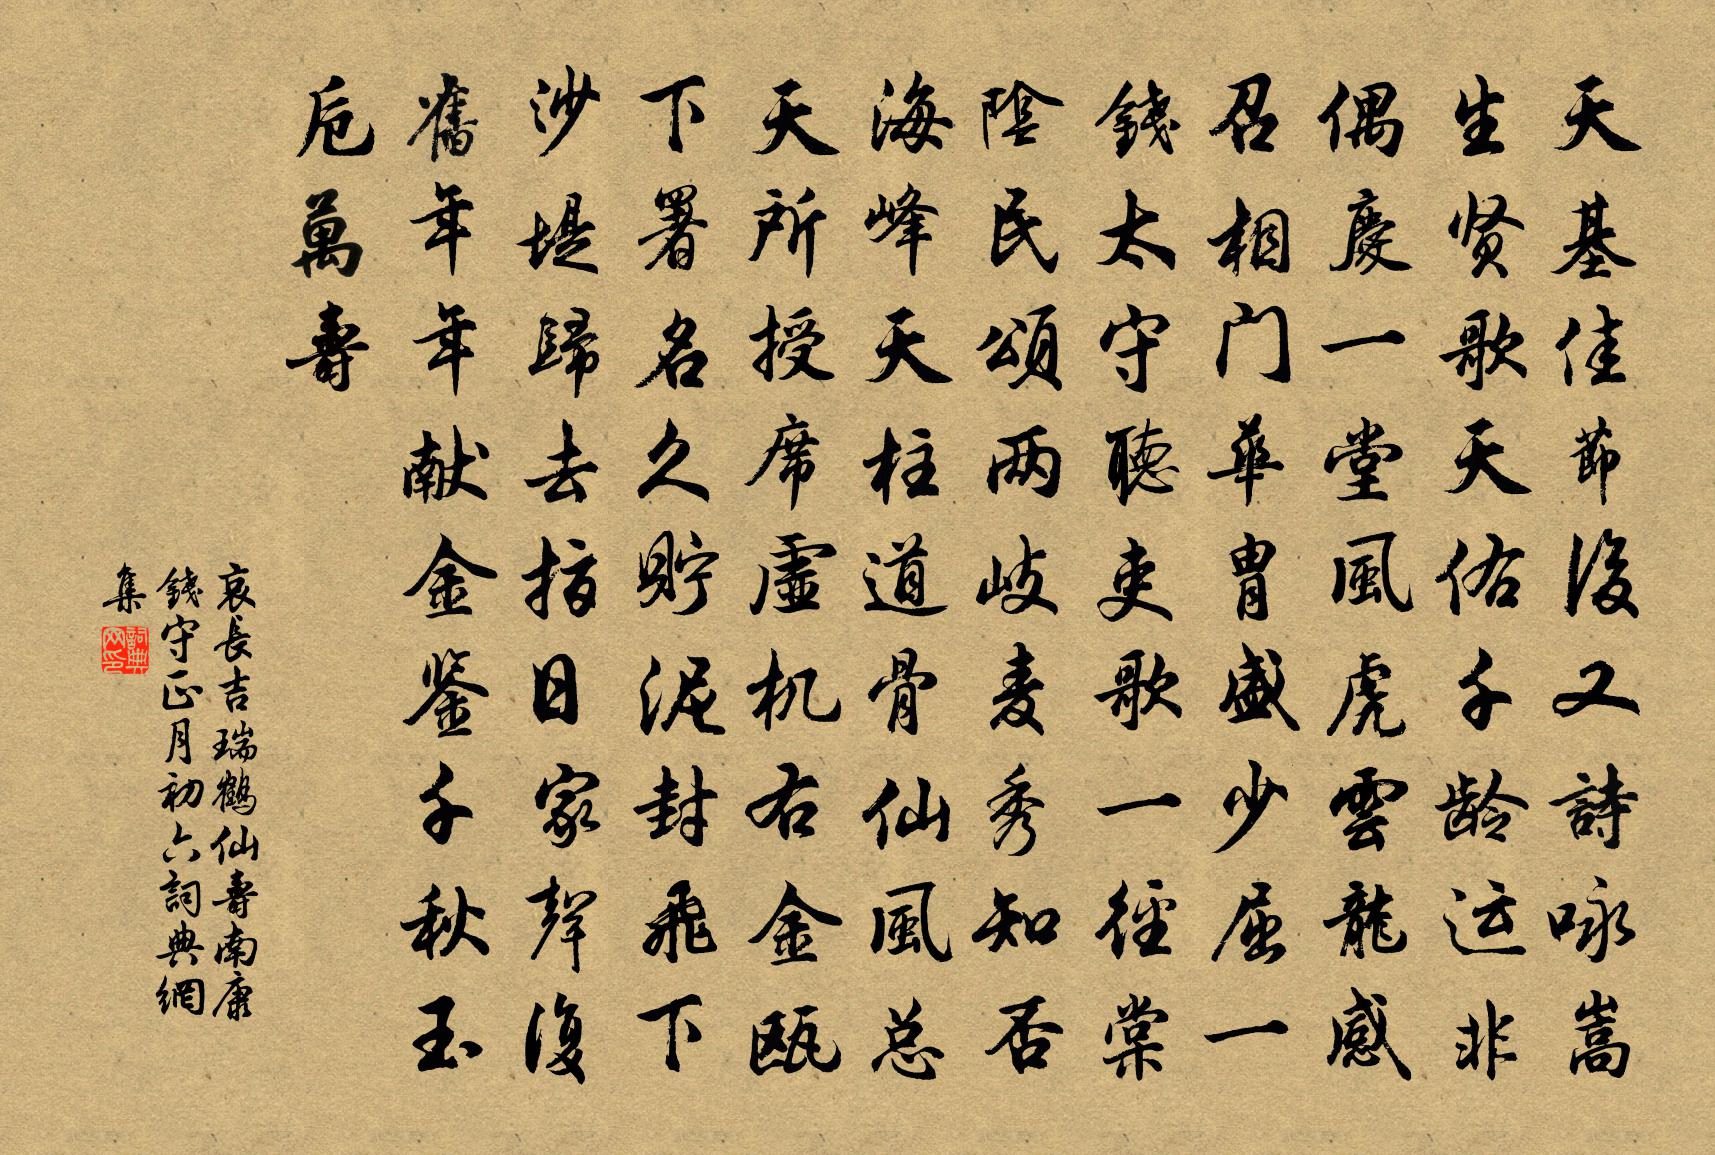 天基佳節後又詩咏嵩
生贤歌天佑千龄运非
偶慶一堂風虎雲龍感
召相门華胄盛少屈一
錢太守聽吏歌一徑棠
陰民頌两岐麦秀知否
海峰天柱道骨仙風总
天所授席虛机右金甌
下署名久貯泥封飛下
沙堤歸去指日家聲復
舊年年献金鉴千秋玉
卮萬壽
哀長吉瑞鶴仙壽南康
錢守正月初六詞典網
集
詞典
网印